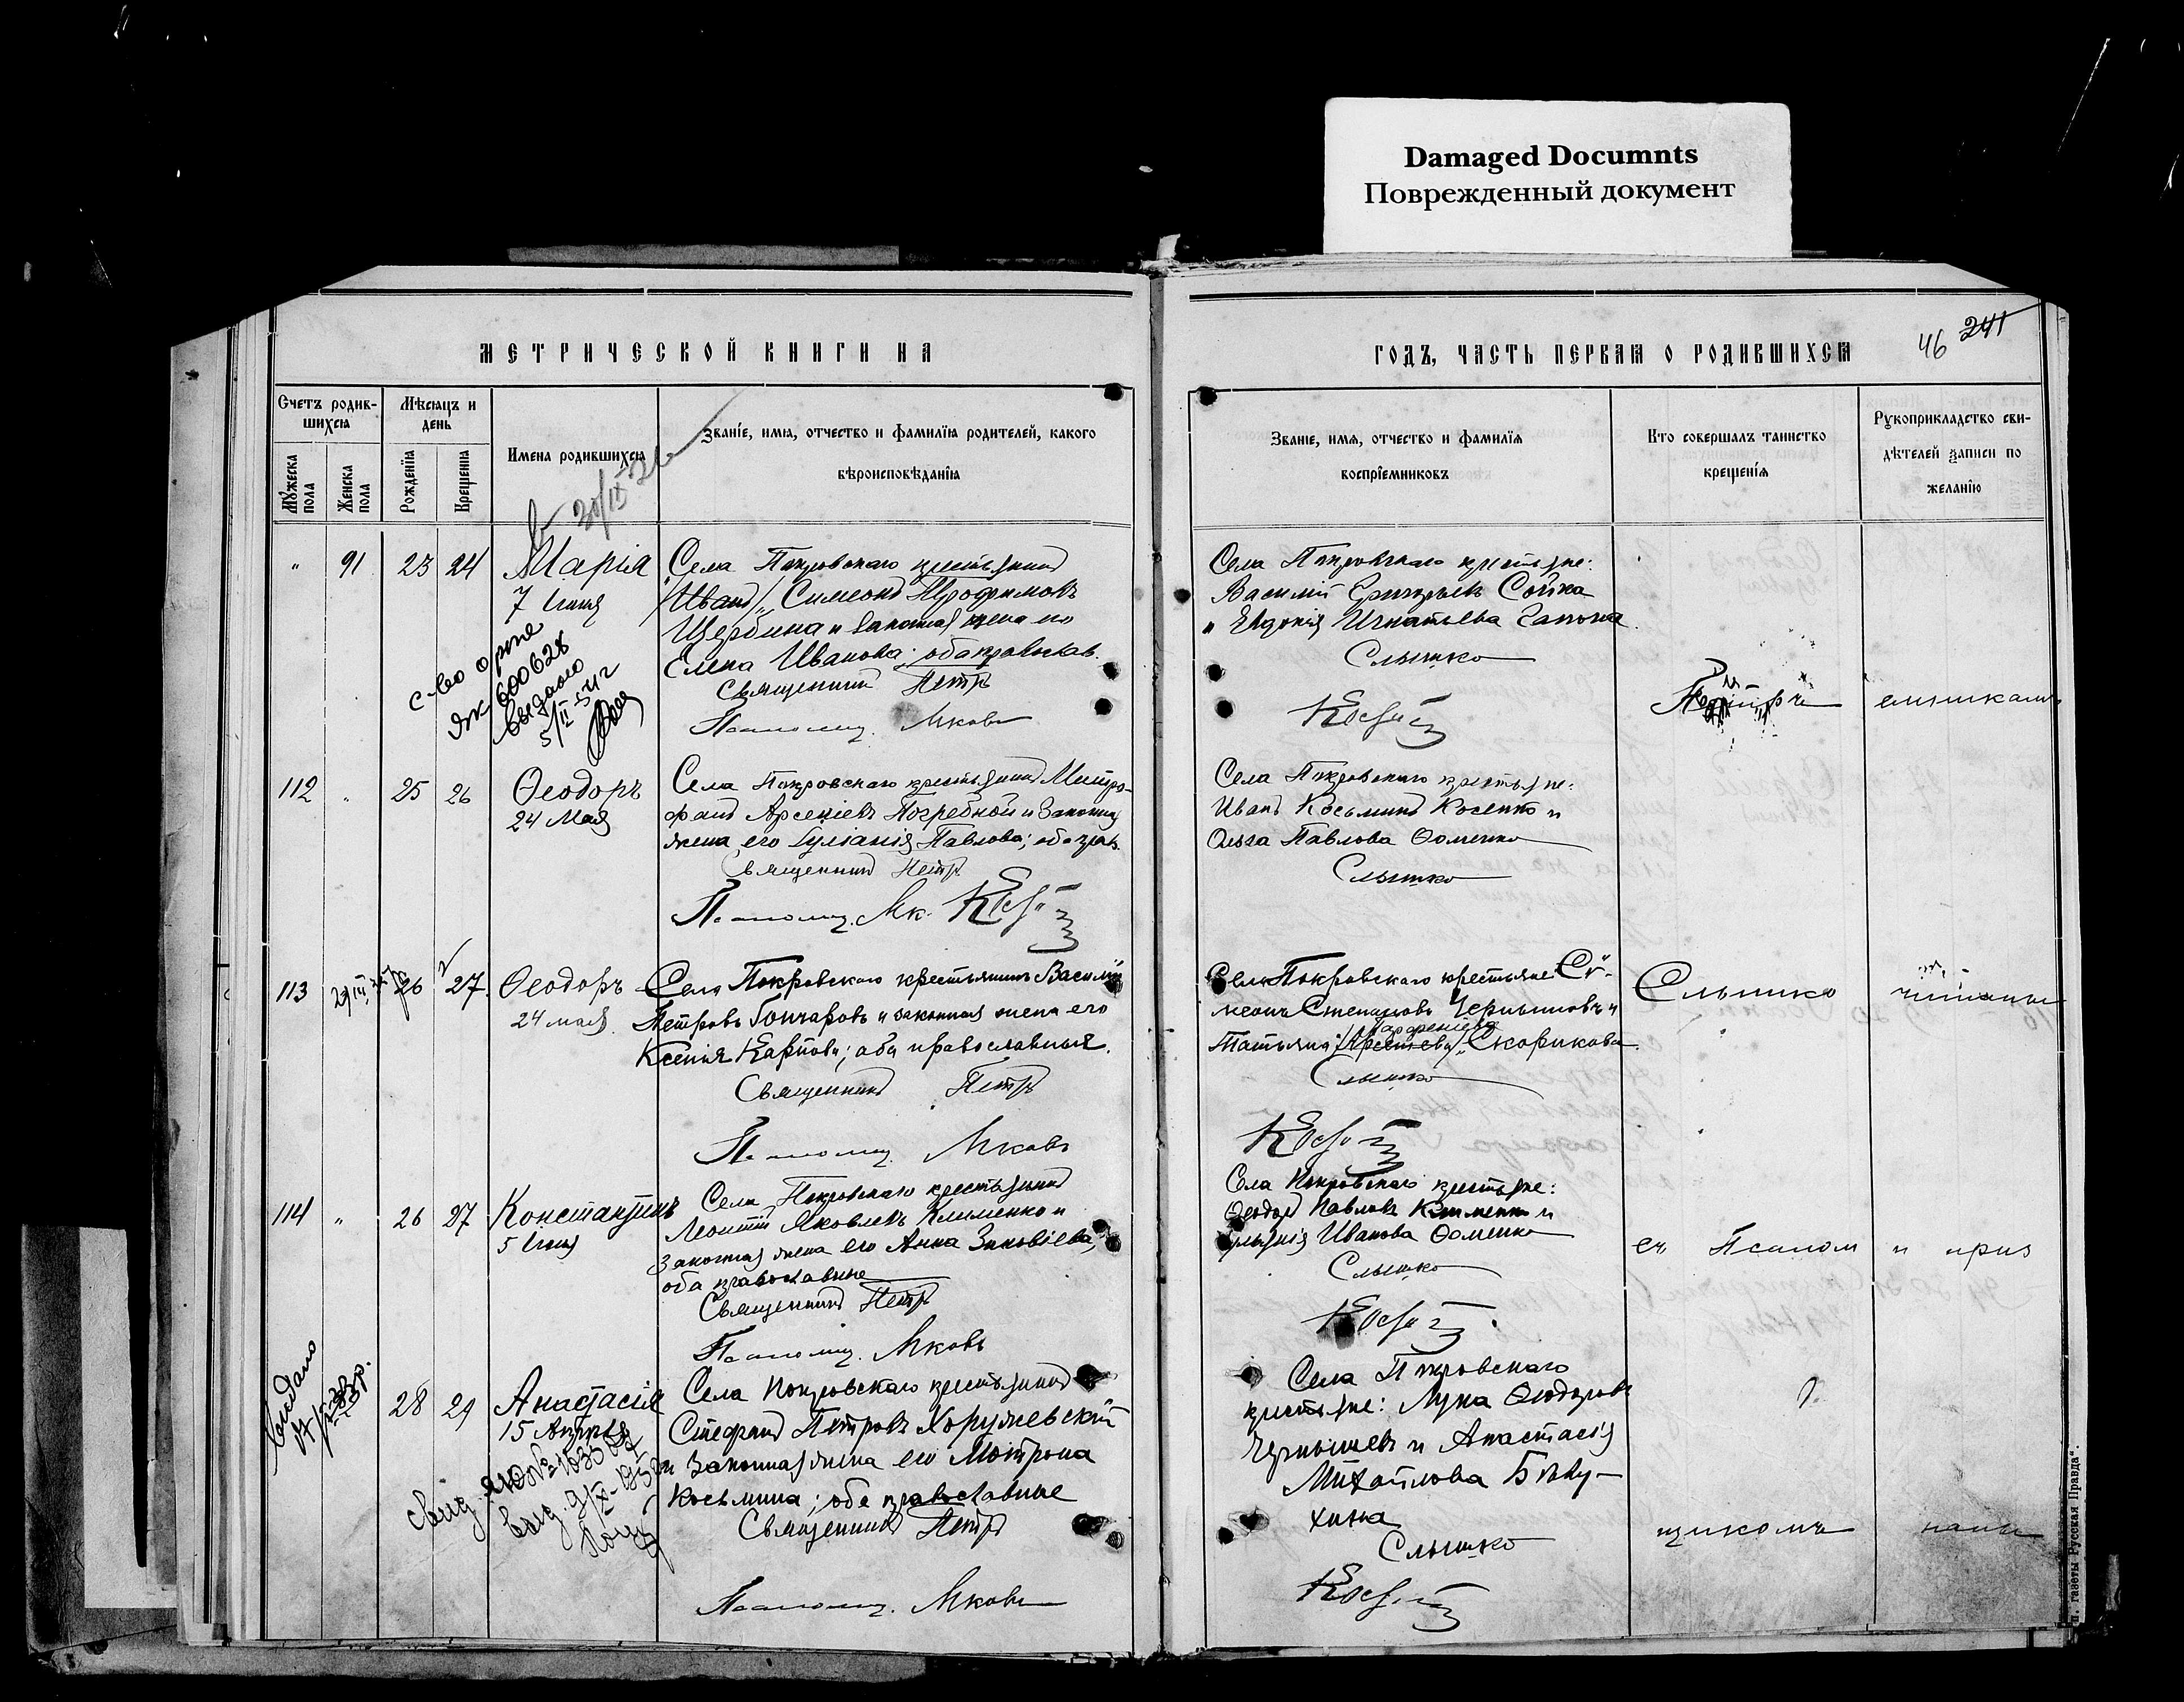 Damaged Documnts
Поврежденный документ
МЕТРИЧЕСКОЙ КНИГИ НА
Счетъ родив-
шихся
Мѣсяцъ и
день
Имена родившихся
Званіе, имя, отчество и фамилія родителей, какого
вѣроисповѣданія
Мужеска
пола
Женска
пола
Рожденія
Крещенія
30/IX 26
" 91 23 24 Марія
7 Іюня
Села Покровскаго крестьянинъ
/Иванъ/ Симеонъ Трофимовъ
Щербина и законная жена его
Елена Иванова; оба православ.
Священникъ Петръ
Псаломщ. Яковъ
с-во о рож
600628
выдано
5/II 54 г
112 " 25 26 Ѳеодоръ
24 Мая
Села Покровскаго крестьянинъ Митро-
фанъ Арсеніевъ Погребной и законная
жена его Іуліанія Павлова; оба прав.
Священникъ Петръ
Псаломщ. Як.
113 26 27 Ѳеодоръ
24 мая
Села Покровскаго крестьянинъ Василій
Петровъ Гончаровъ и законная жена его
Ксенія Карпова; оба православные.
Священникъ Петръ
Псаломщ. Яковъ
114 " 26 27 Константинъ
5 Іюня
Села Покровскаго крестьянинъ
Леонтій Яковлевъ Клименко и
законная жена его Анна Зиновіева,
оба православные
Священникъ Петръ
Псаломщ. Яковъ
Выдано
28 29 Анастасія
15 Апрѣля
Села Покровскаго крестьянинъ
Стефанъ Петровъ Хоружевскій
и законная жена его Мотрона
Косьмина; оба православные
Священникъ Петръ
Псаломщ. Яковъ
свид. ЯЮ №
выд. 9/IX-195
ГОДЪ, ЧАСТЬ ПЕРВАЯ О РОДИВШИХСЯ
46 241
Званіе, имя, отчество и фамилія
воспріемниковъ
Кто совершалъ таинство
крещенія
Рукоприкладство сви-
дѣтелей записи по
желанію
Села Покровскаго крестьяне:
Василій Григорьевъ Сойка
и Евдокія Игнатьева
Слышко
Села Покровскаго крестьяне:
Иванъ Косьминъ Косенко и
Ольга Павлова Ѳоменко
Слышко
Села Покровскаго крестьяне: Си-
меонъ Степановъ Чернышовъ и
Татьяна /Арсеніева/ Парфеніева Скорикова.
Слышко
Слышко читаны
Села Покровскаго крестьяне:
Ѳеодоръ Павловъ Клименко и
Иванова Ѳоменко
Слышко
съ Псалом и приз
Села Покровскаго
крестьяне: Лука Ѳеодоровъ
Чернышевъ и Анастасія
Михайлова Бѣлу-
хина
Слышко
щикомъ наны
газеты Русская Правда".